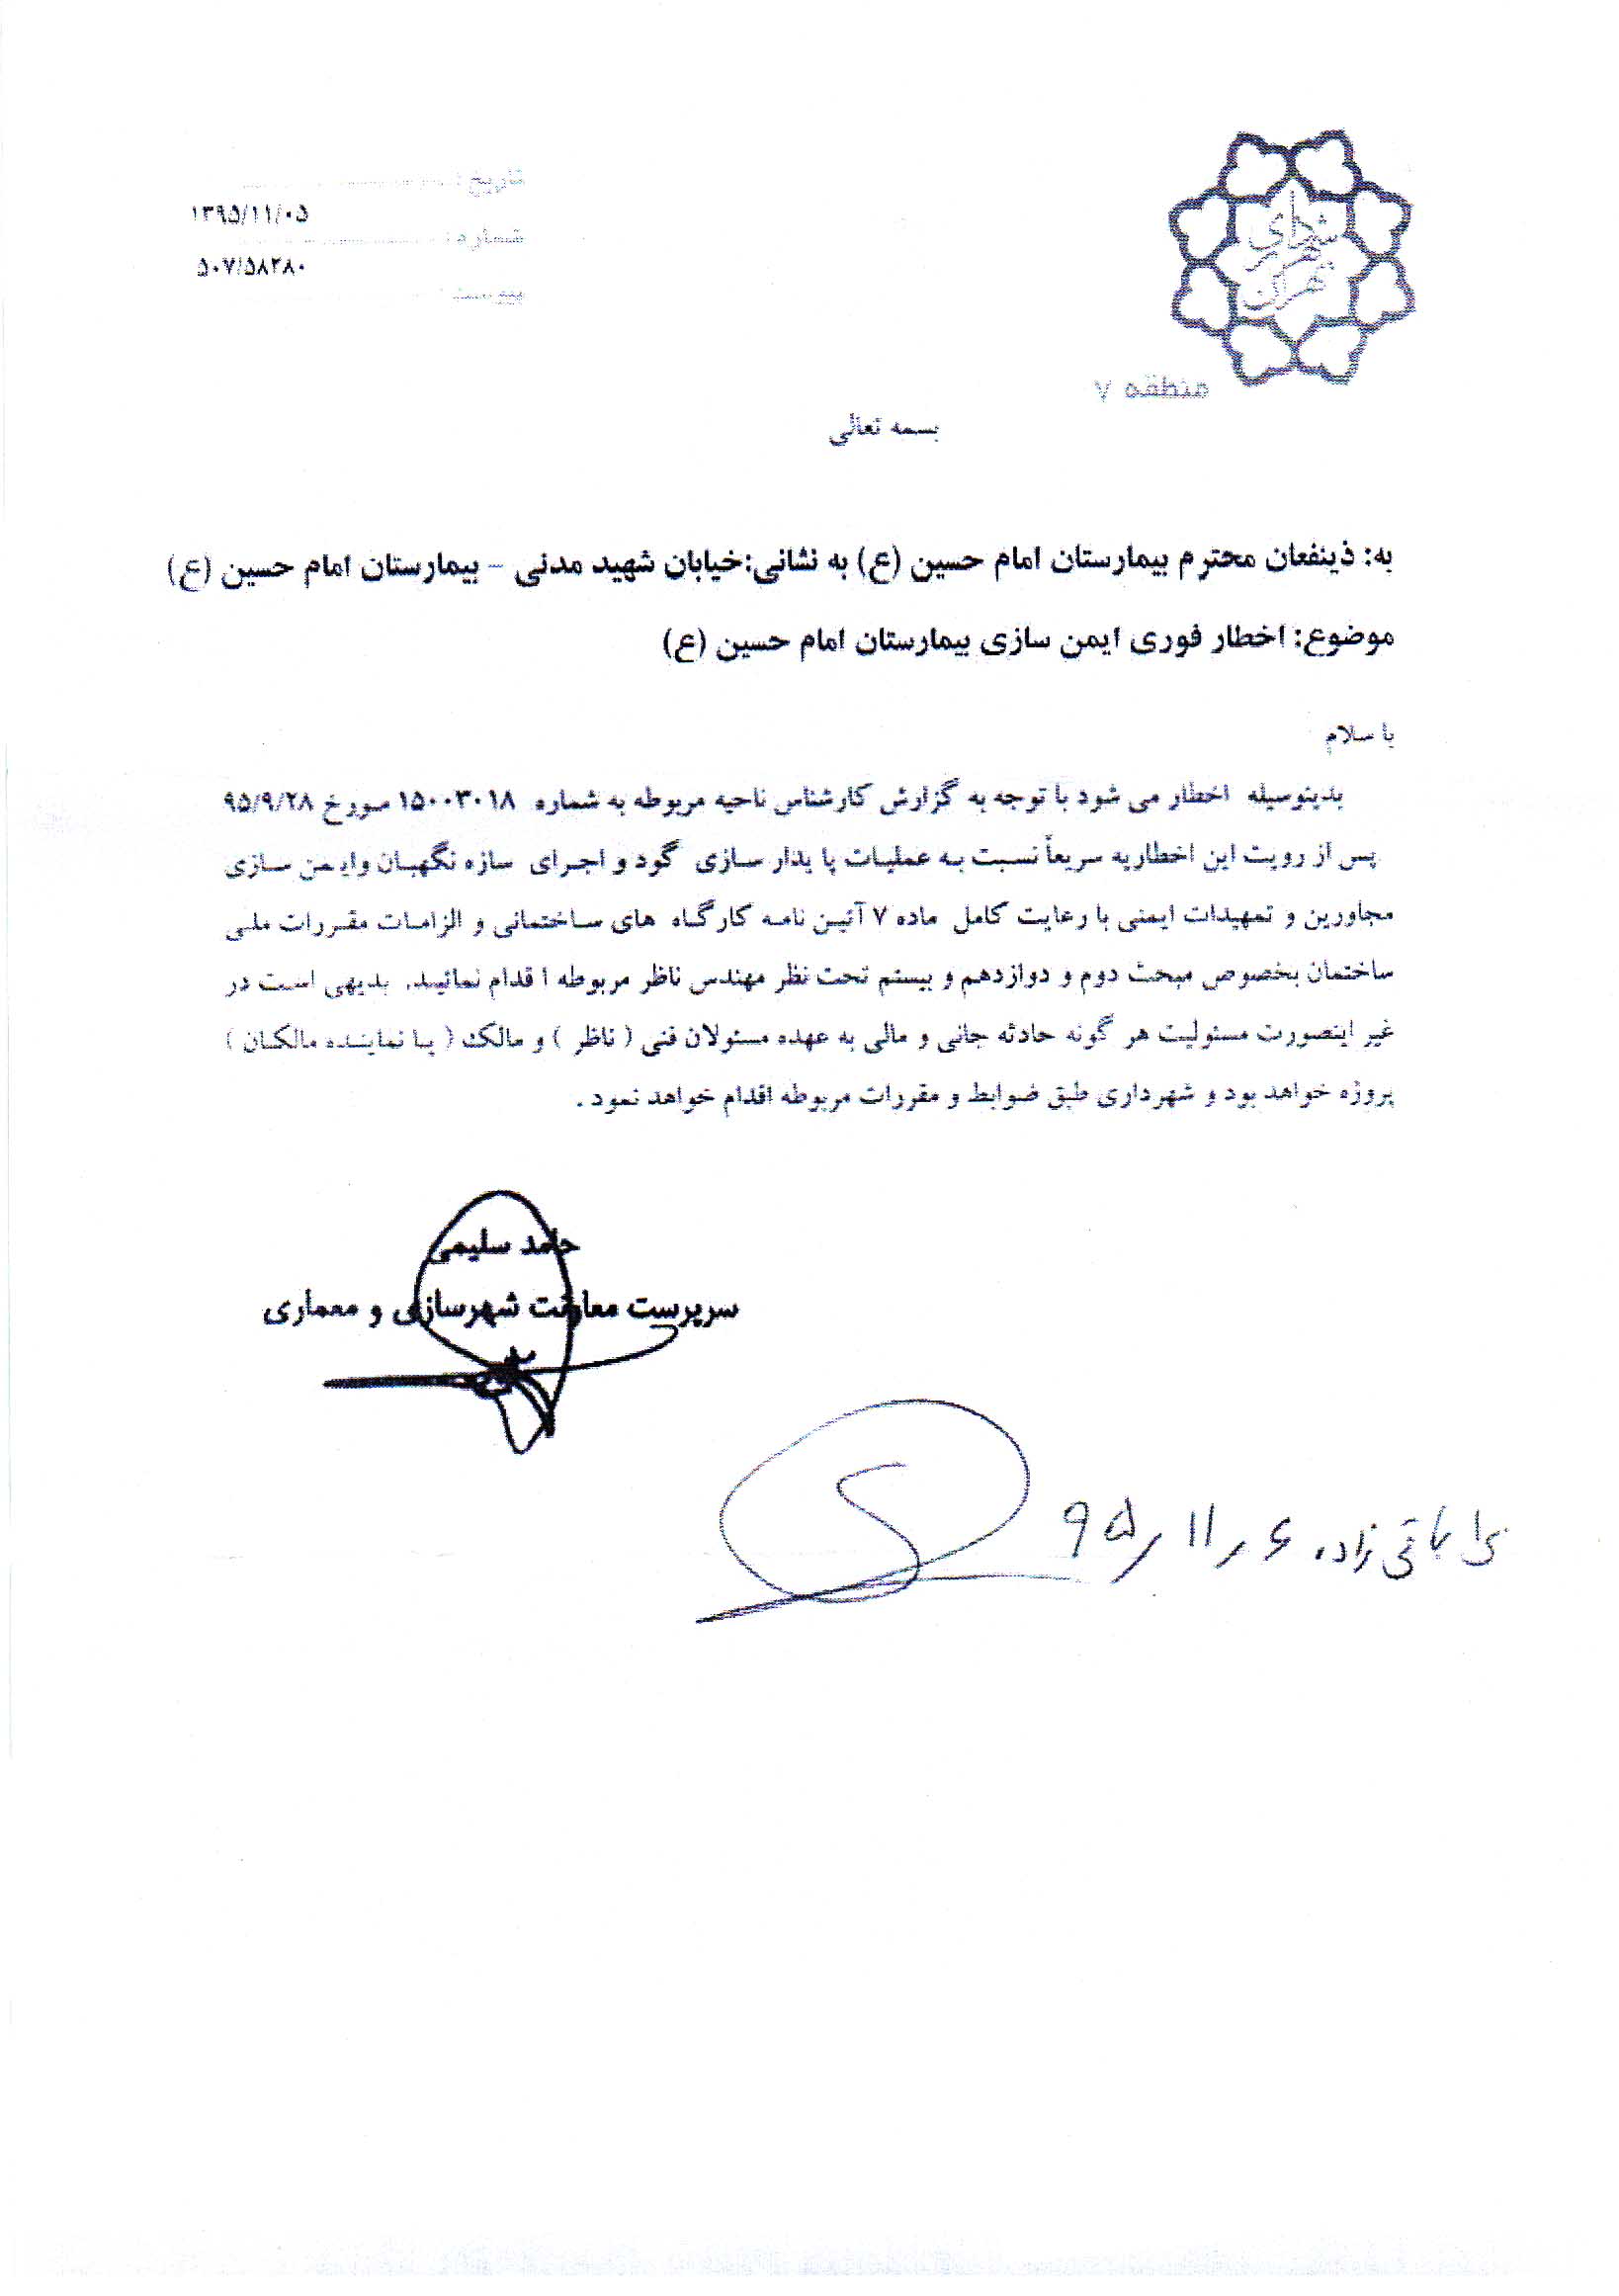 تاریخ :
۱۳۹۵/۱۱/۰۵
شماره :
۵۰۷/۵۸۲۸۰
پیوست :
شهرداری
تهران
منطقه ۷
بسمه تعالی
به: ذینفعان محترم بیمارستان امام حسین (ع) به نشانی:خیابان شهید مدنی – بیمارستان امام حسین (ع)
موضوع: اخطار فوری ایمن سازی بیمارستان امام حسین (ع)
با سلام
بدینوسیله اخطار می شود با توجه به گزارش کارشناس ناحیه مربوطه به شماره ۱۵۰۰۳۰۱۸ مورخ ۹۵/۹/۲۸
پس از رویت این اخطاریه سریعاً نسبت به عملیات پا یدار سازی گود و اجرای سازه نگهبان وایمن سازی
مجاورین و تمهیدات ایمنی با رعایت کامل ماده ۷ آئین نامه کارگاه های ساختمانی و الزامات مقررات ملی
ساختمان بخصوص مبحث دوم و دوازدهم و بیستم تحت نظر مهندس ناظر مربوطه ا قدام نمائید. بدیهی است در
غیر اینصورت مسئولیت هر گونه حادثه جانی و مالی به عهده مسئولان فنی ( ناظر ) و مالک ( یا نماینده مالکان )
پروژه خواهد بود و شهرداری طبق ضوابط و مقررات مربوطه اقدام خواهد نمود .
حامد سلیمی
سرپرست معاونت شهرسازی و معماری
باقی زاده ۹۵/۱۱/۶